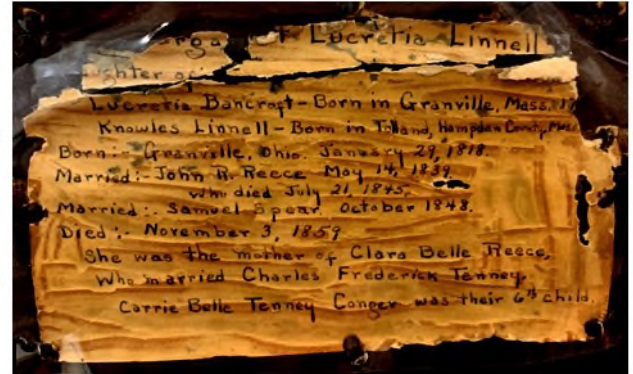 Lucretia Linnell
Lucretia Bancroft - Born in Granville, Mass.
Knowles Linnell - Born in Tolland, Hampden County, Mass.
Born:- Granville, Ohio. January 29, 1818.
Married:- John R. Reece May 14, 1839.
who died July 21, 1845.
Married:- Samuel Spear, October 1848.
Died:- November 3, 1859
She was the mother of Clara Belle Reece,
Who married Charles Frederick Tenney.
Carrie Belle Tenney Conger was their 6th child.